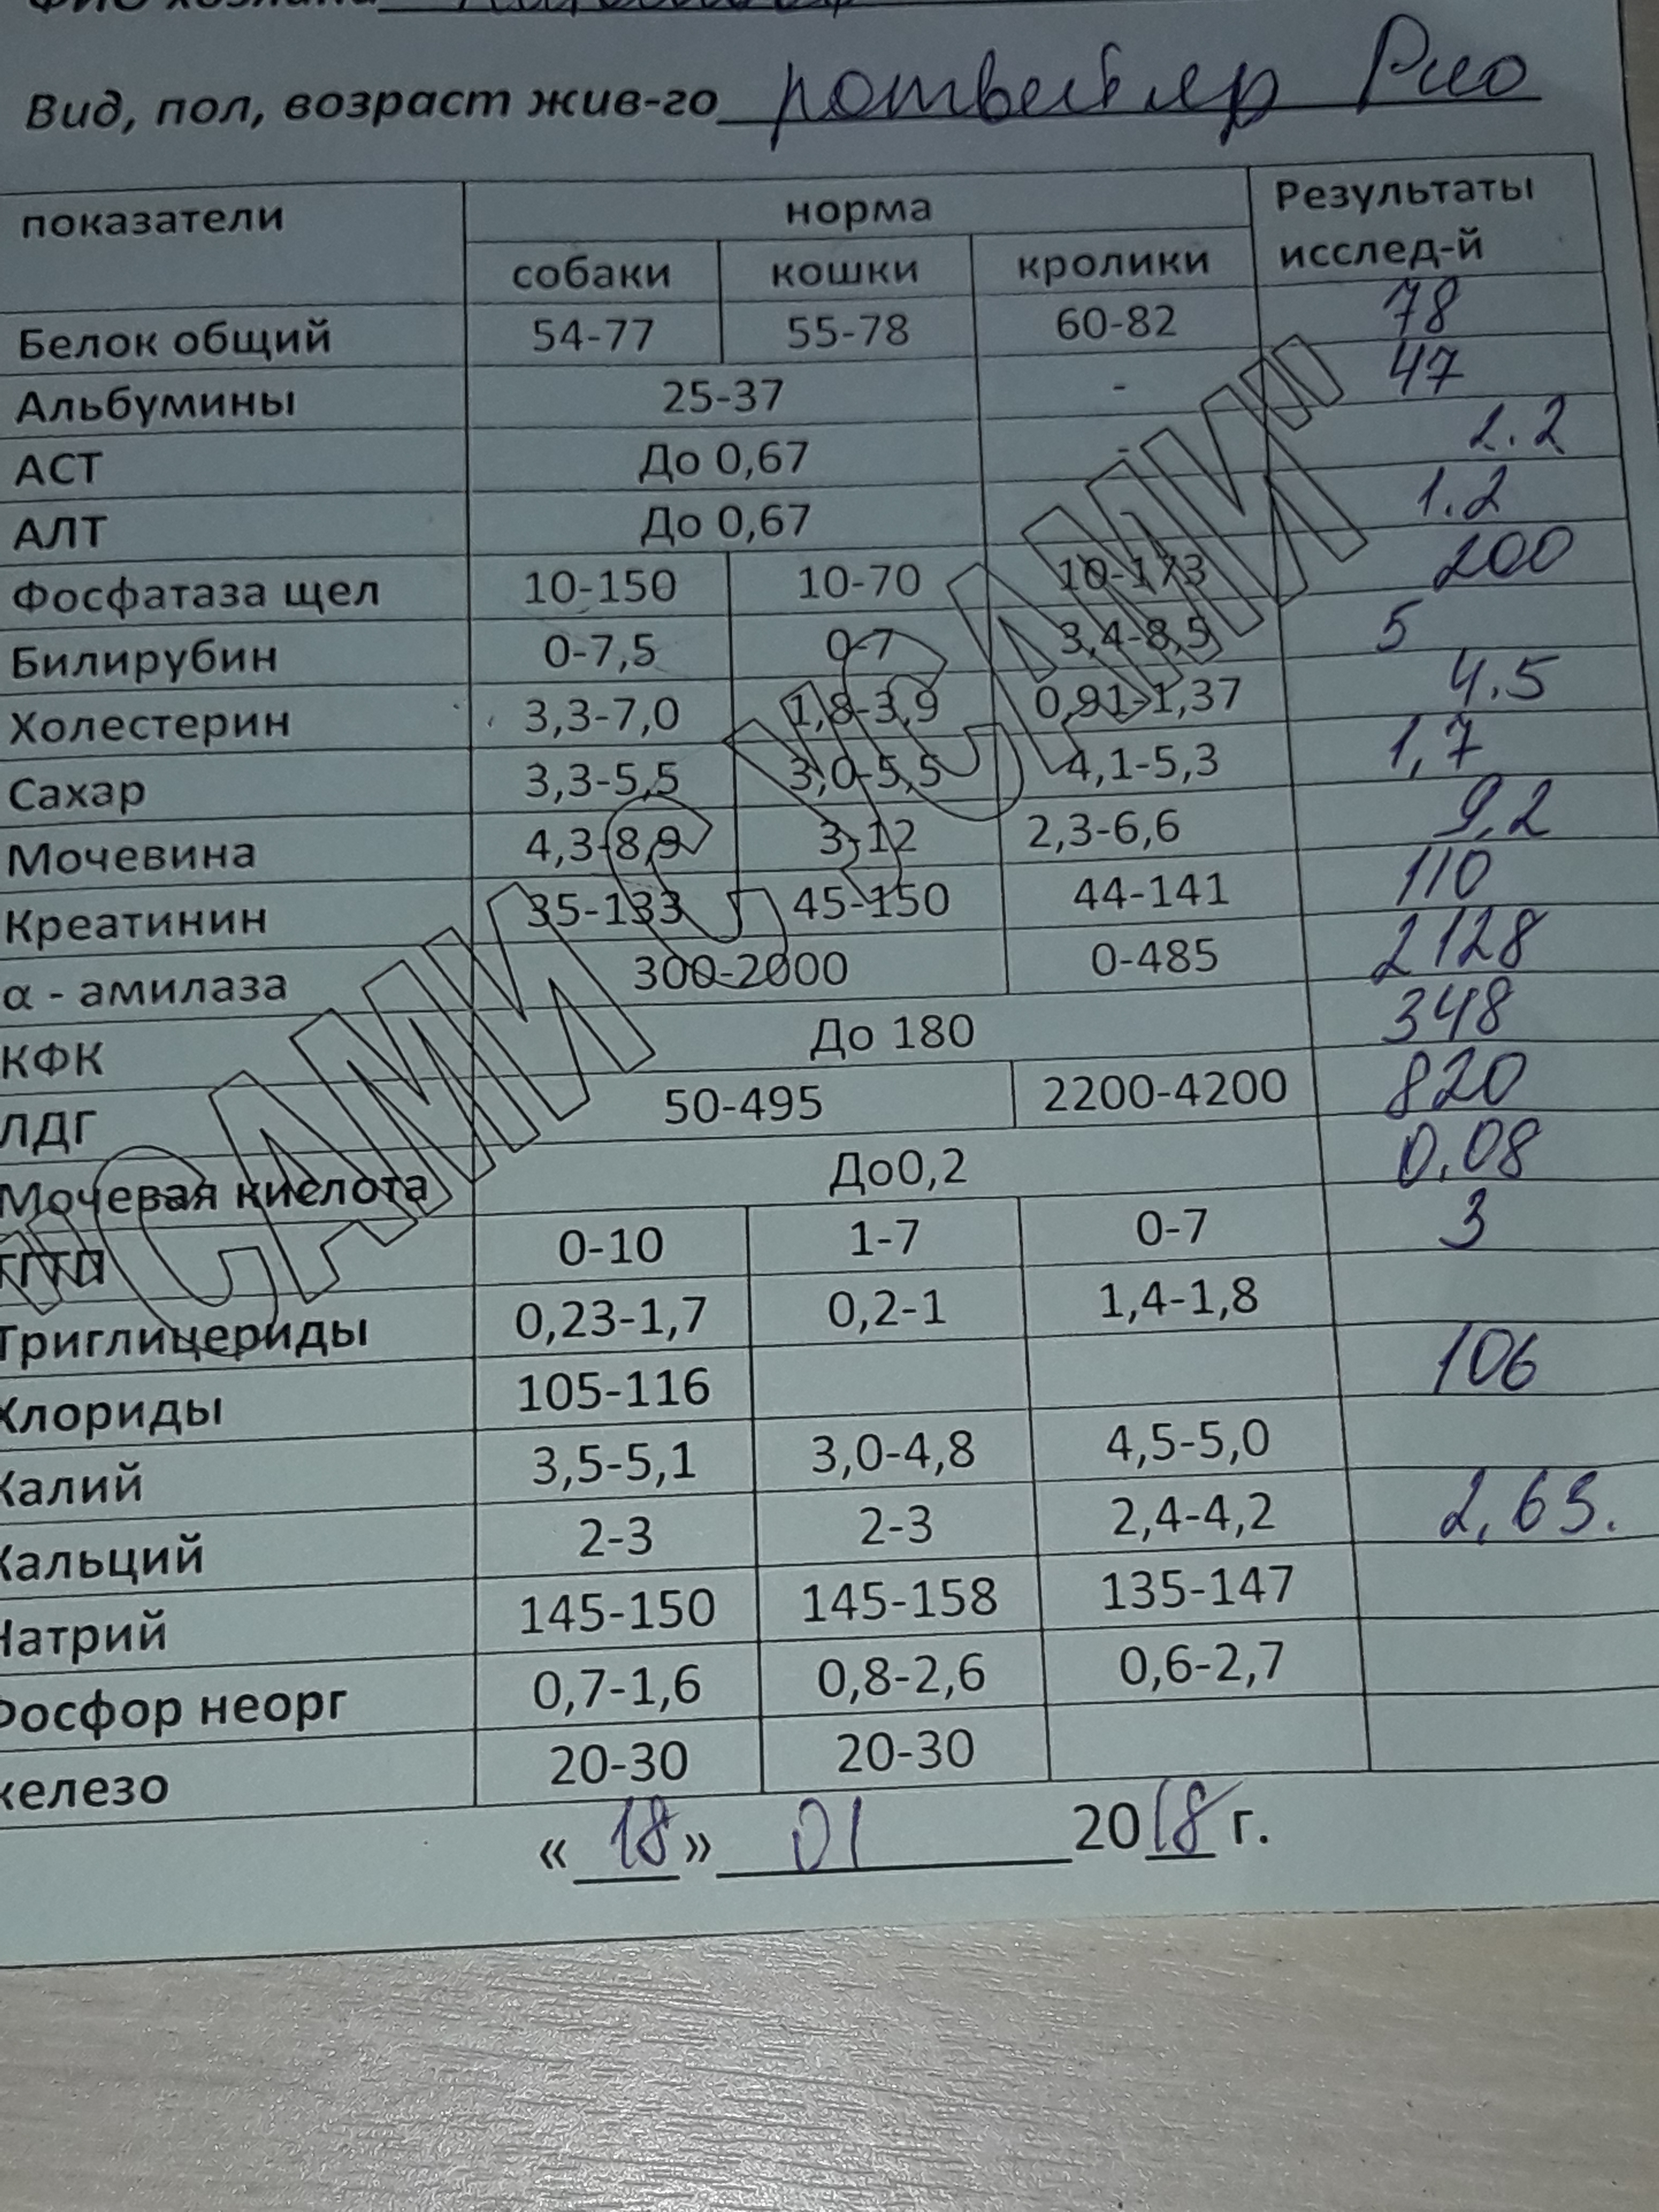 Вид, пол, возраст жив-го ротвейлер Рио
показатели норма Результаты
собаки кошки кролики исслед-й
Белок общий 54-77 55-78 60-82 78
Альбумины 25-37 - 47
АСТ До 0,67 - 2.2
АЛТ До 0,67 1.2
Фосфатаза щел 10-150 10-70 10-173 200
Билирубин 0-7,5 0-7 3,4-8,5 5
Холестерин 3,3-7,0 1,8-3,9 0,91-1,37 4.5
Сахар 3,3-5,5 3,0-5,5 4,1-5,3 1,7
Мочевина 4,3-8,9 3-12 2,3-6,6 9,2
Креатинин 35-133 45-150 44-141 110
α - амилаза 300-2000 0-485 2128
КФК До 180 348
ЛДГ 50-495 2200-4200 820
Мочевая кислота До0,2 0.08
0-10 1-7 0-7 3
Триглицериды 0,23-1,7 0,2-1 1,4-1,8
Хлориды 105-116 106
Калий 3,5-5,1 3,0-4,8 4,5-5,0
Кальций 2-3 2-3 2,4-4,2 2,63.
Натрий 145-150 145-158 135-147
Фосфор неорг 0,7-1,6 0,8-2,6 0,6-2,7
железо 20-30 20-30
«18» 01 2018 г.